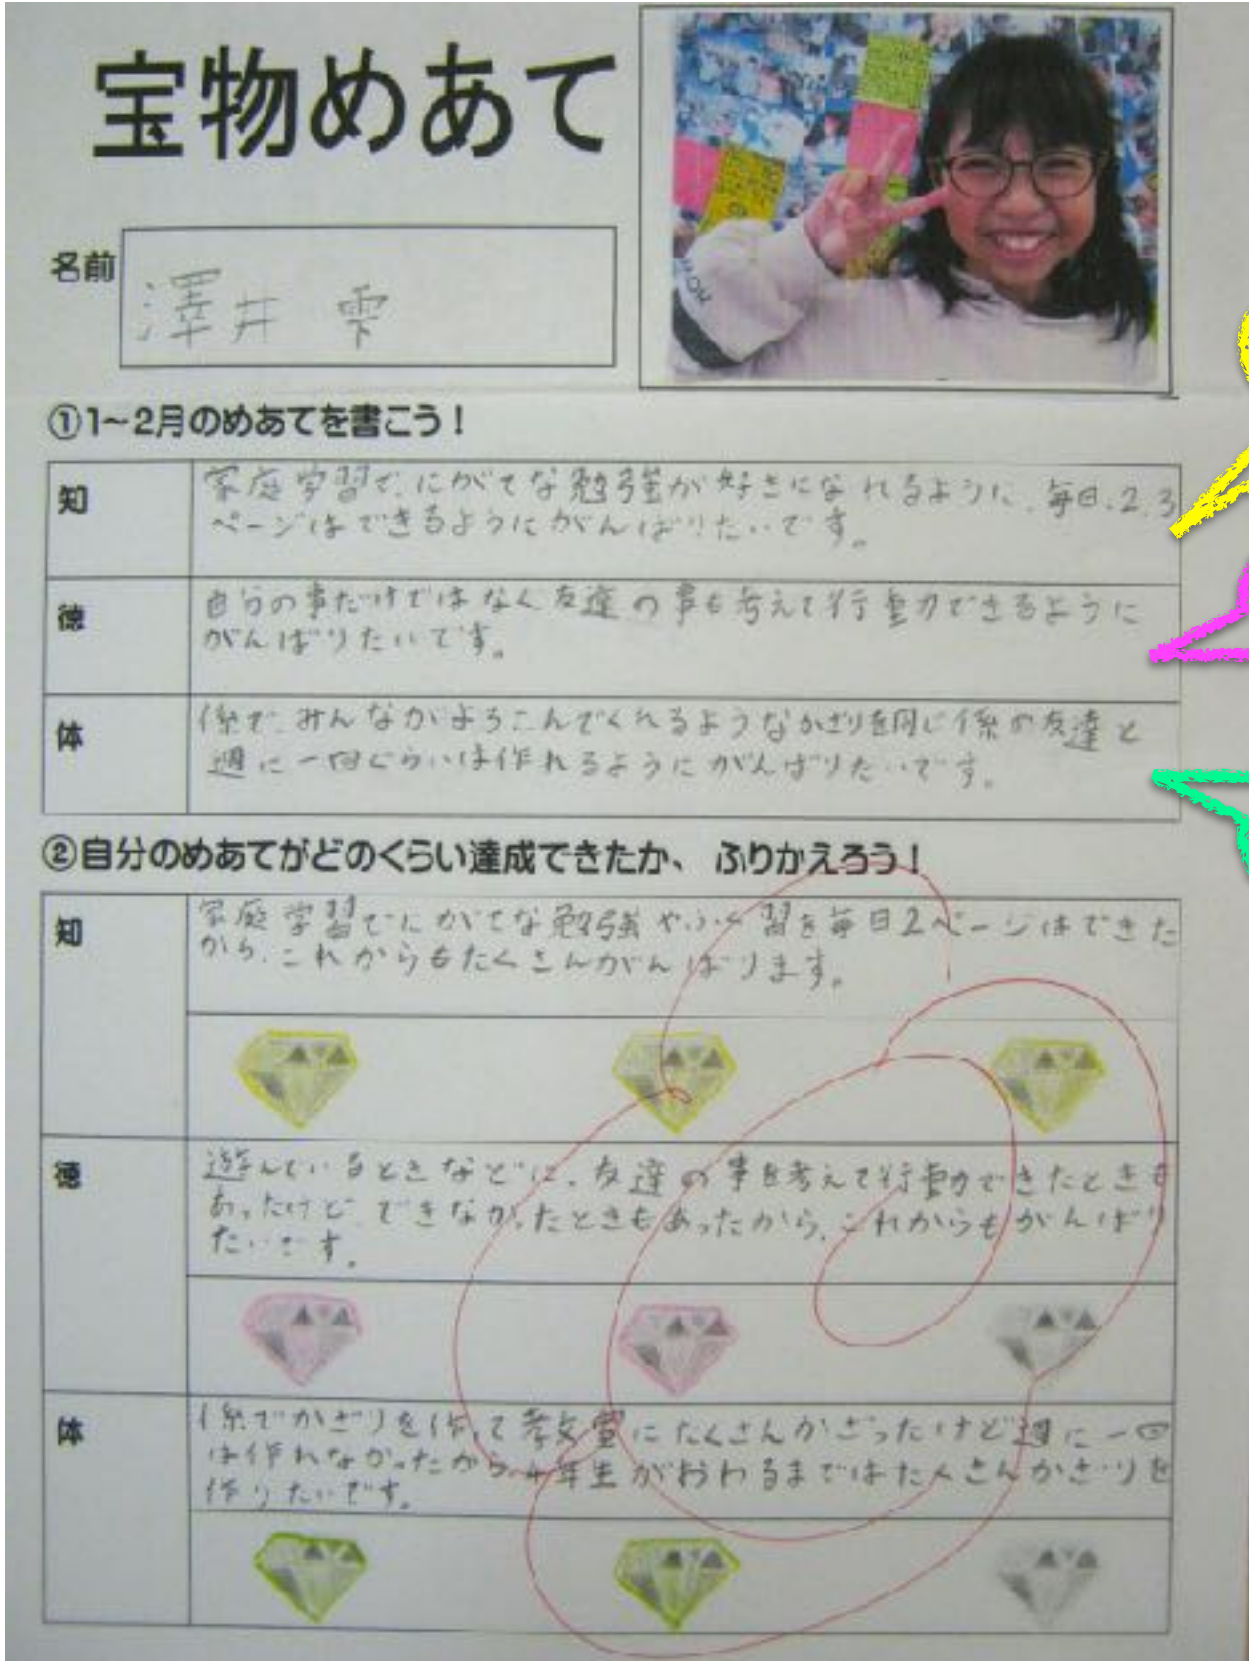 宝物めあて
名前
澤井 雫
①1~2月のめあてを書こう!
知
家庭学習で、にがてな勉強が好きになれるように、毎日、2、3
ページはできるようにがんばりたいです。
徳
自分の事だけではなく友達の事も考えて行動できるように
がんばりたいです。
体
係で、みんながよろこんでくれるようなかざりを同じ係の友達と
週に一回ぐらいは作れるようにがんばりたいです。
②自分のめあてがどのくらい達成できたか、 ふりかえろう!
知
家庭学習でにがてな勉強やふく習を毎日2ページはできた
から、これからもたくさんがんばります。
徳
遊んでいるときなどに、友達の事を考えて行動できたときも
あったけど、できなかったときもあったから、これからもがんばり
たいです。
体
係でかざりを作って孝文堂にたくさんかざったけど週に一回
は作れなかったから、4年生がおわるまではたくさんかざりを
作りたいです。